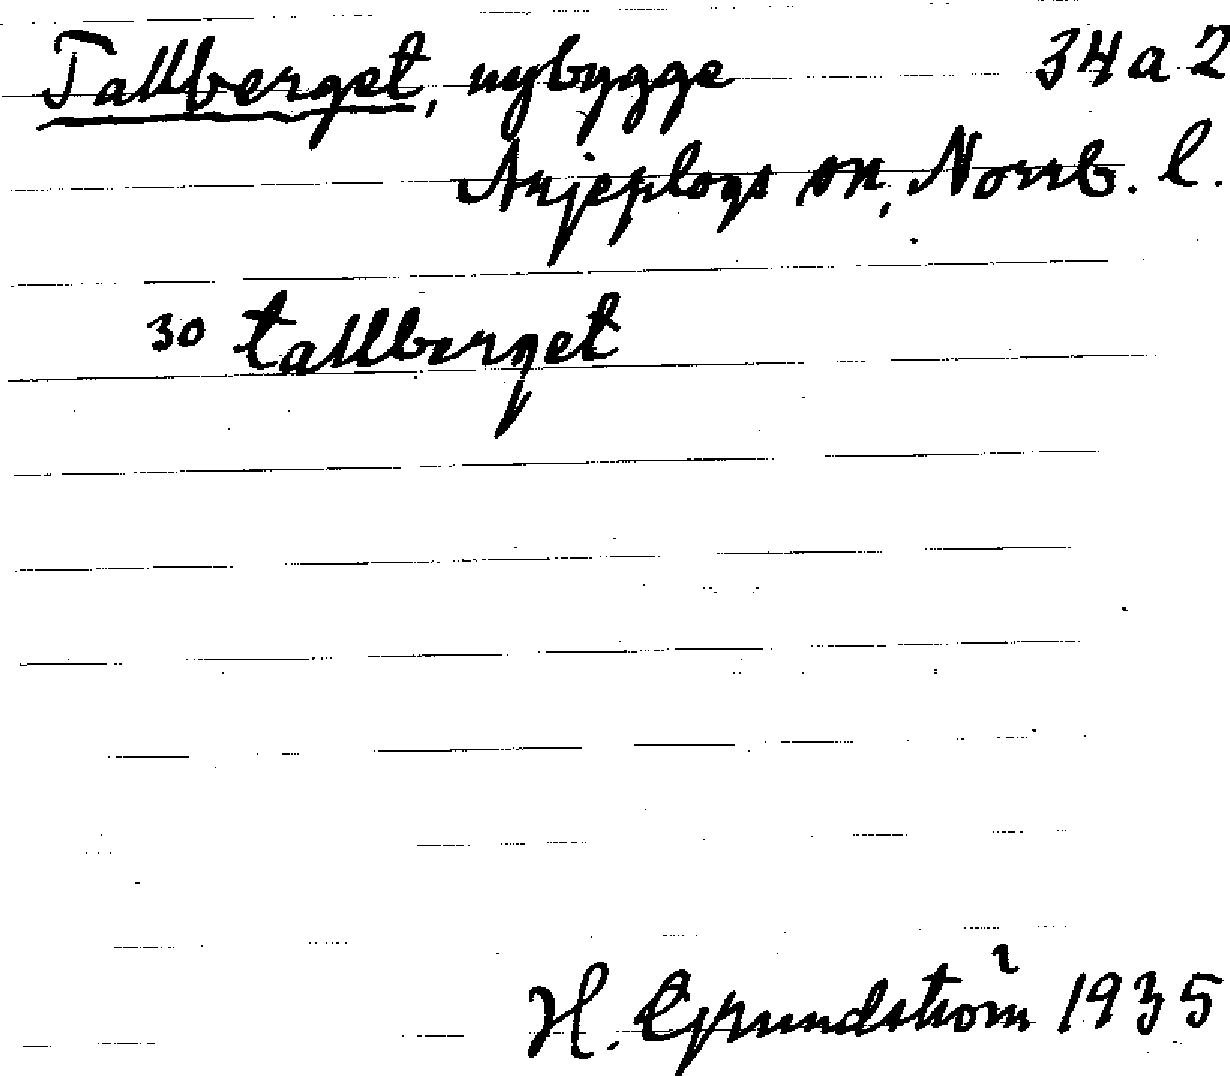 Tallberget, nybygge 34 a 2
Arjeplogs sn, Norrb. l.
30 tallberget
H. Grundström 1935